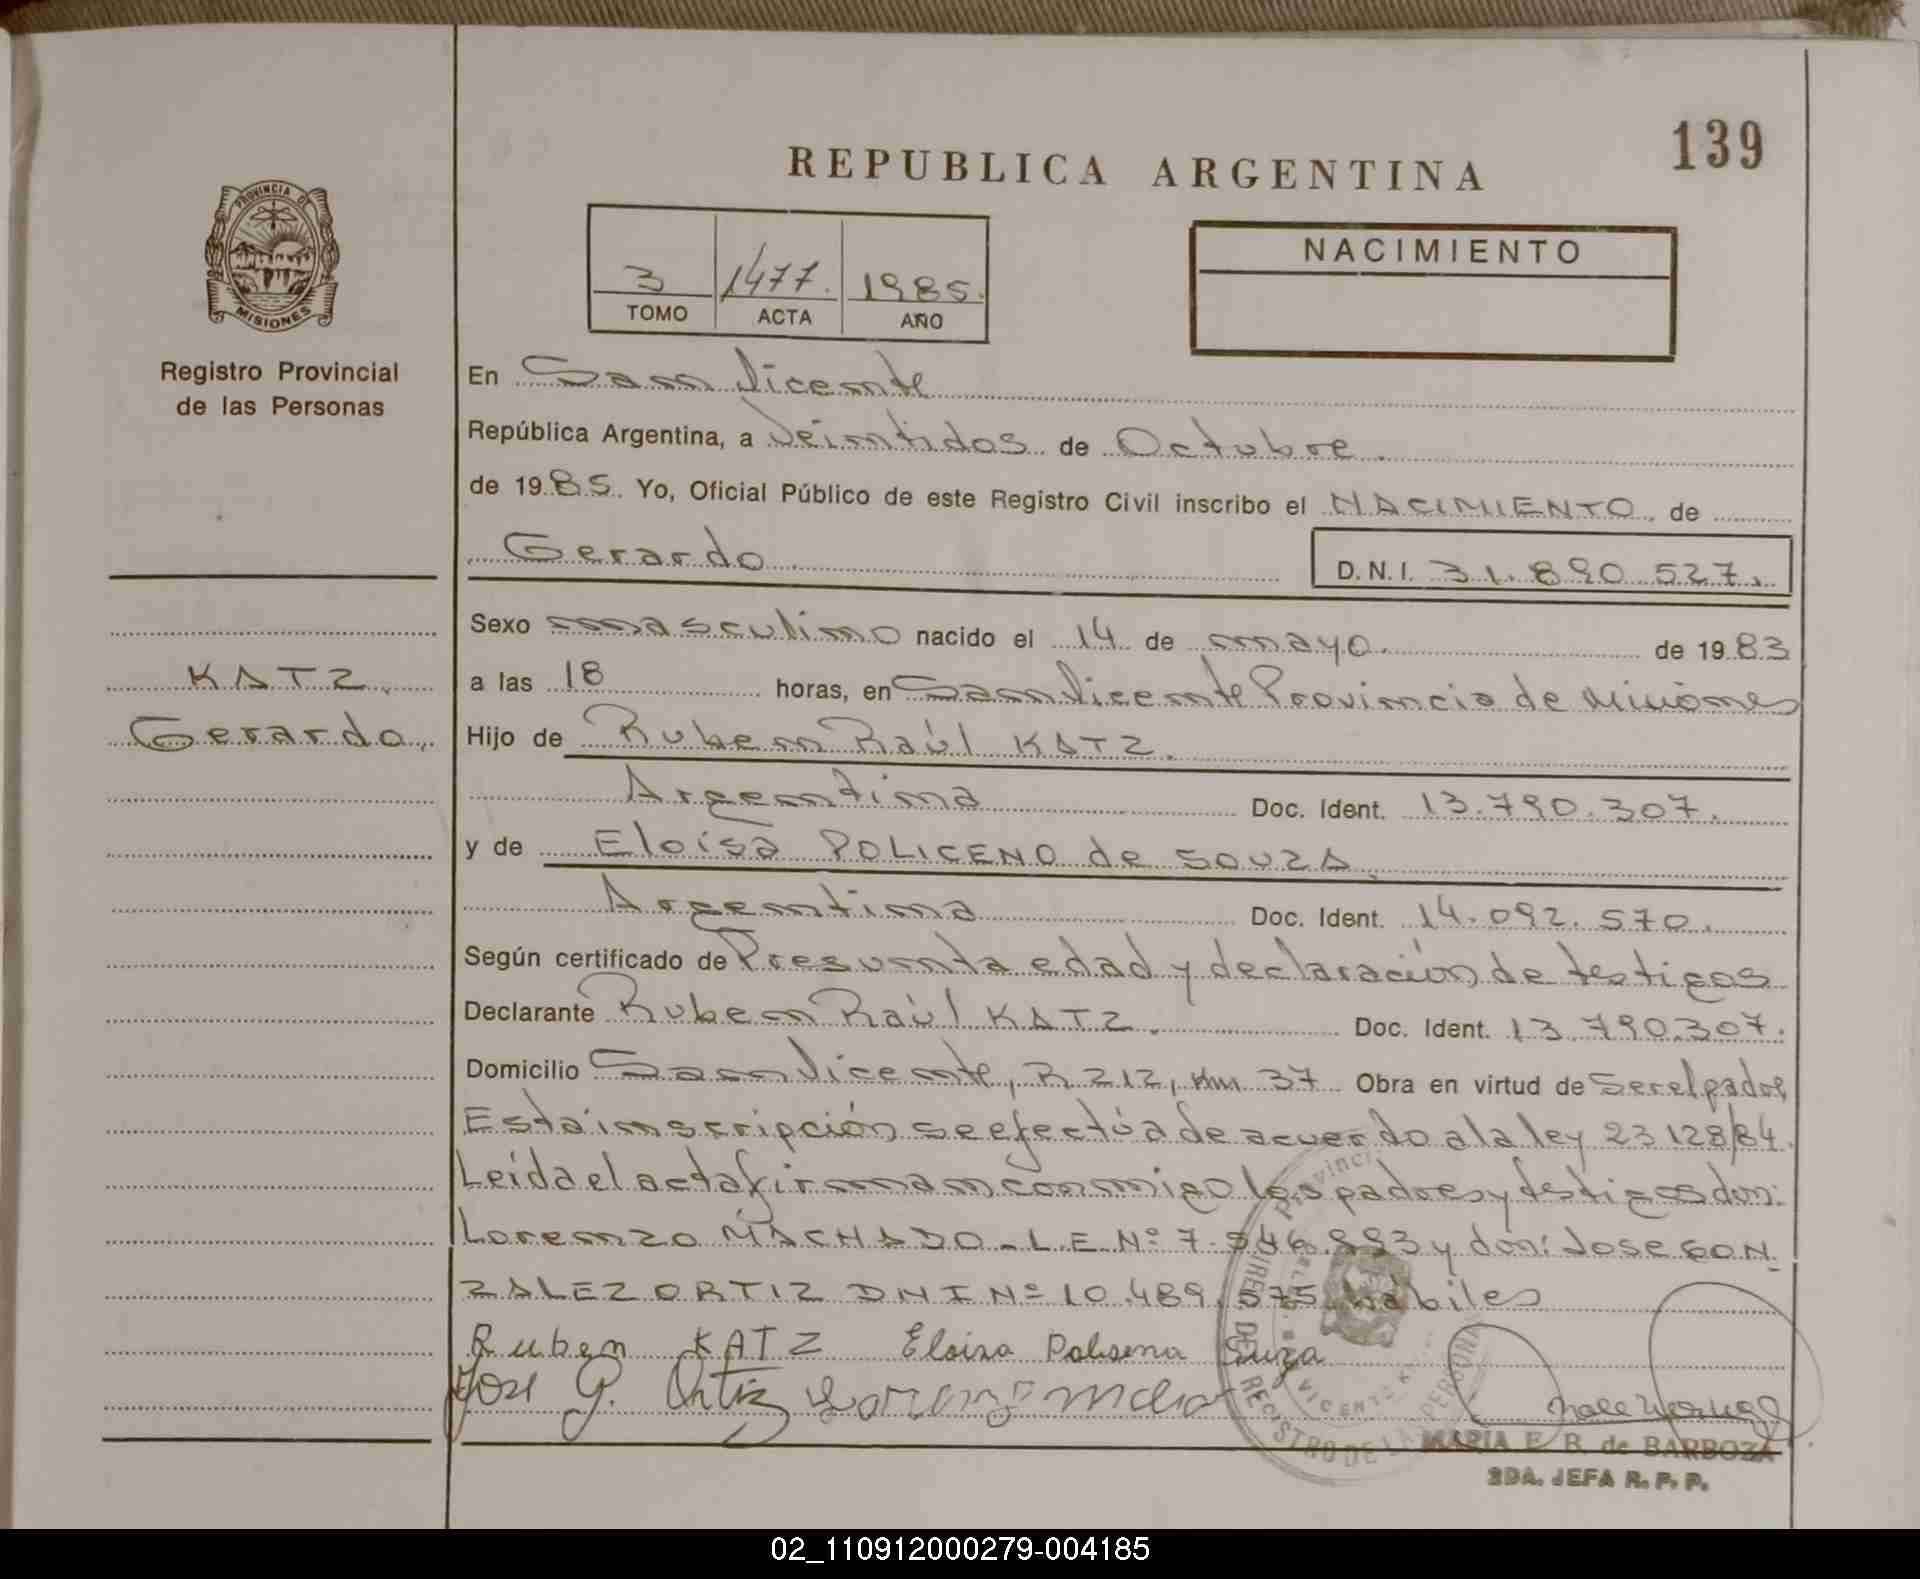 139
REPUBLICA ARGENTINA
PROVINCIA DE
MISIONES
Registro Provincial
de las Personas
3 1477. 1985.
TOMO ACTA AÑO
NACIMIENTO
En San Vicente
República Argentina, a Veintidos de Octubre.
de 1985. Yo, Oficial Público de este Registro Civil inscribo el NACIMIENTO de
Gerardo
D.N.I. 31.890.527.
Sexo masculino nacido el 14 de mayo. de 1983
KATZ.
Gerardo.
a las 18 horas, en San Vicente Provincia de Misiones
Hijo de Ruben Raúl KATZ.
Argentina Doc. Ident. 13.790.307.
y de Eloisa POLICENO de SOUZA.
Argentina Doc. Ident. 14.092.570.
Según certificado de Presunta edad y declaración de testigos
Declarante Ruben Raúl KATZ. Doc. Ident. 13.790.307.
Domicilio San Vicente, R 212, Km 37 Obra en virtud de Ser el padre
Esta inscripción se efectúa de acuerdo a la ley 23128/84.
Leída el acta firman conmigo los padres y testigos don:
Lorenzo MACHADO - L.E. Nº 7. y don: Jose GON
ZALEZ ORTIZ DNI Nº 10.489.575 habiles
Ruben KATZ Eloisa Suza
Jose G. Ortiz
MARIA E. B. de BARBOZA
2DA. JEFA R. P. P.
02_110912000279-004185